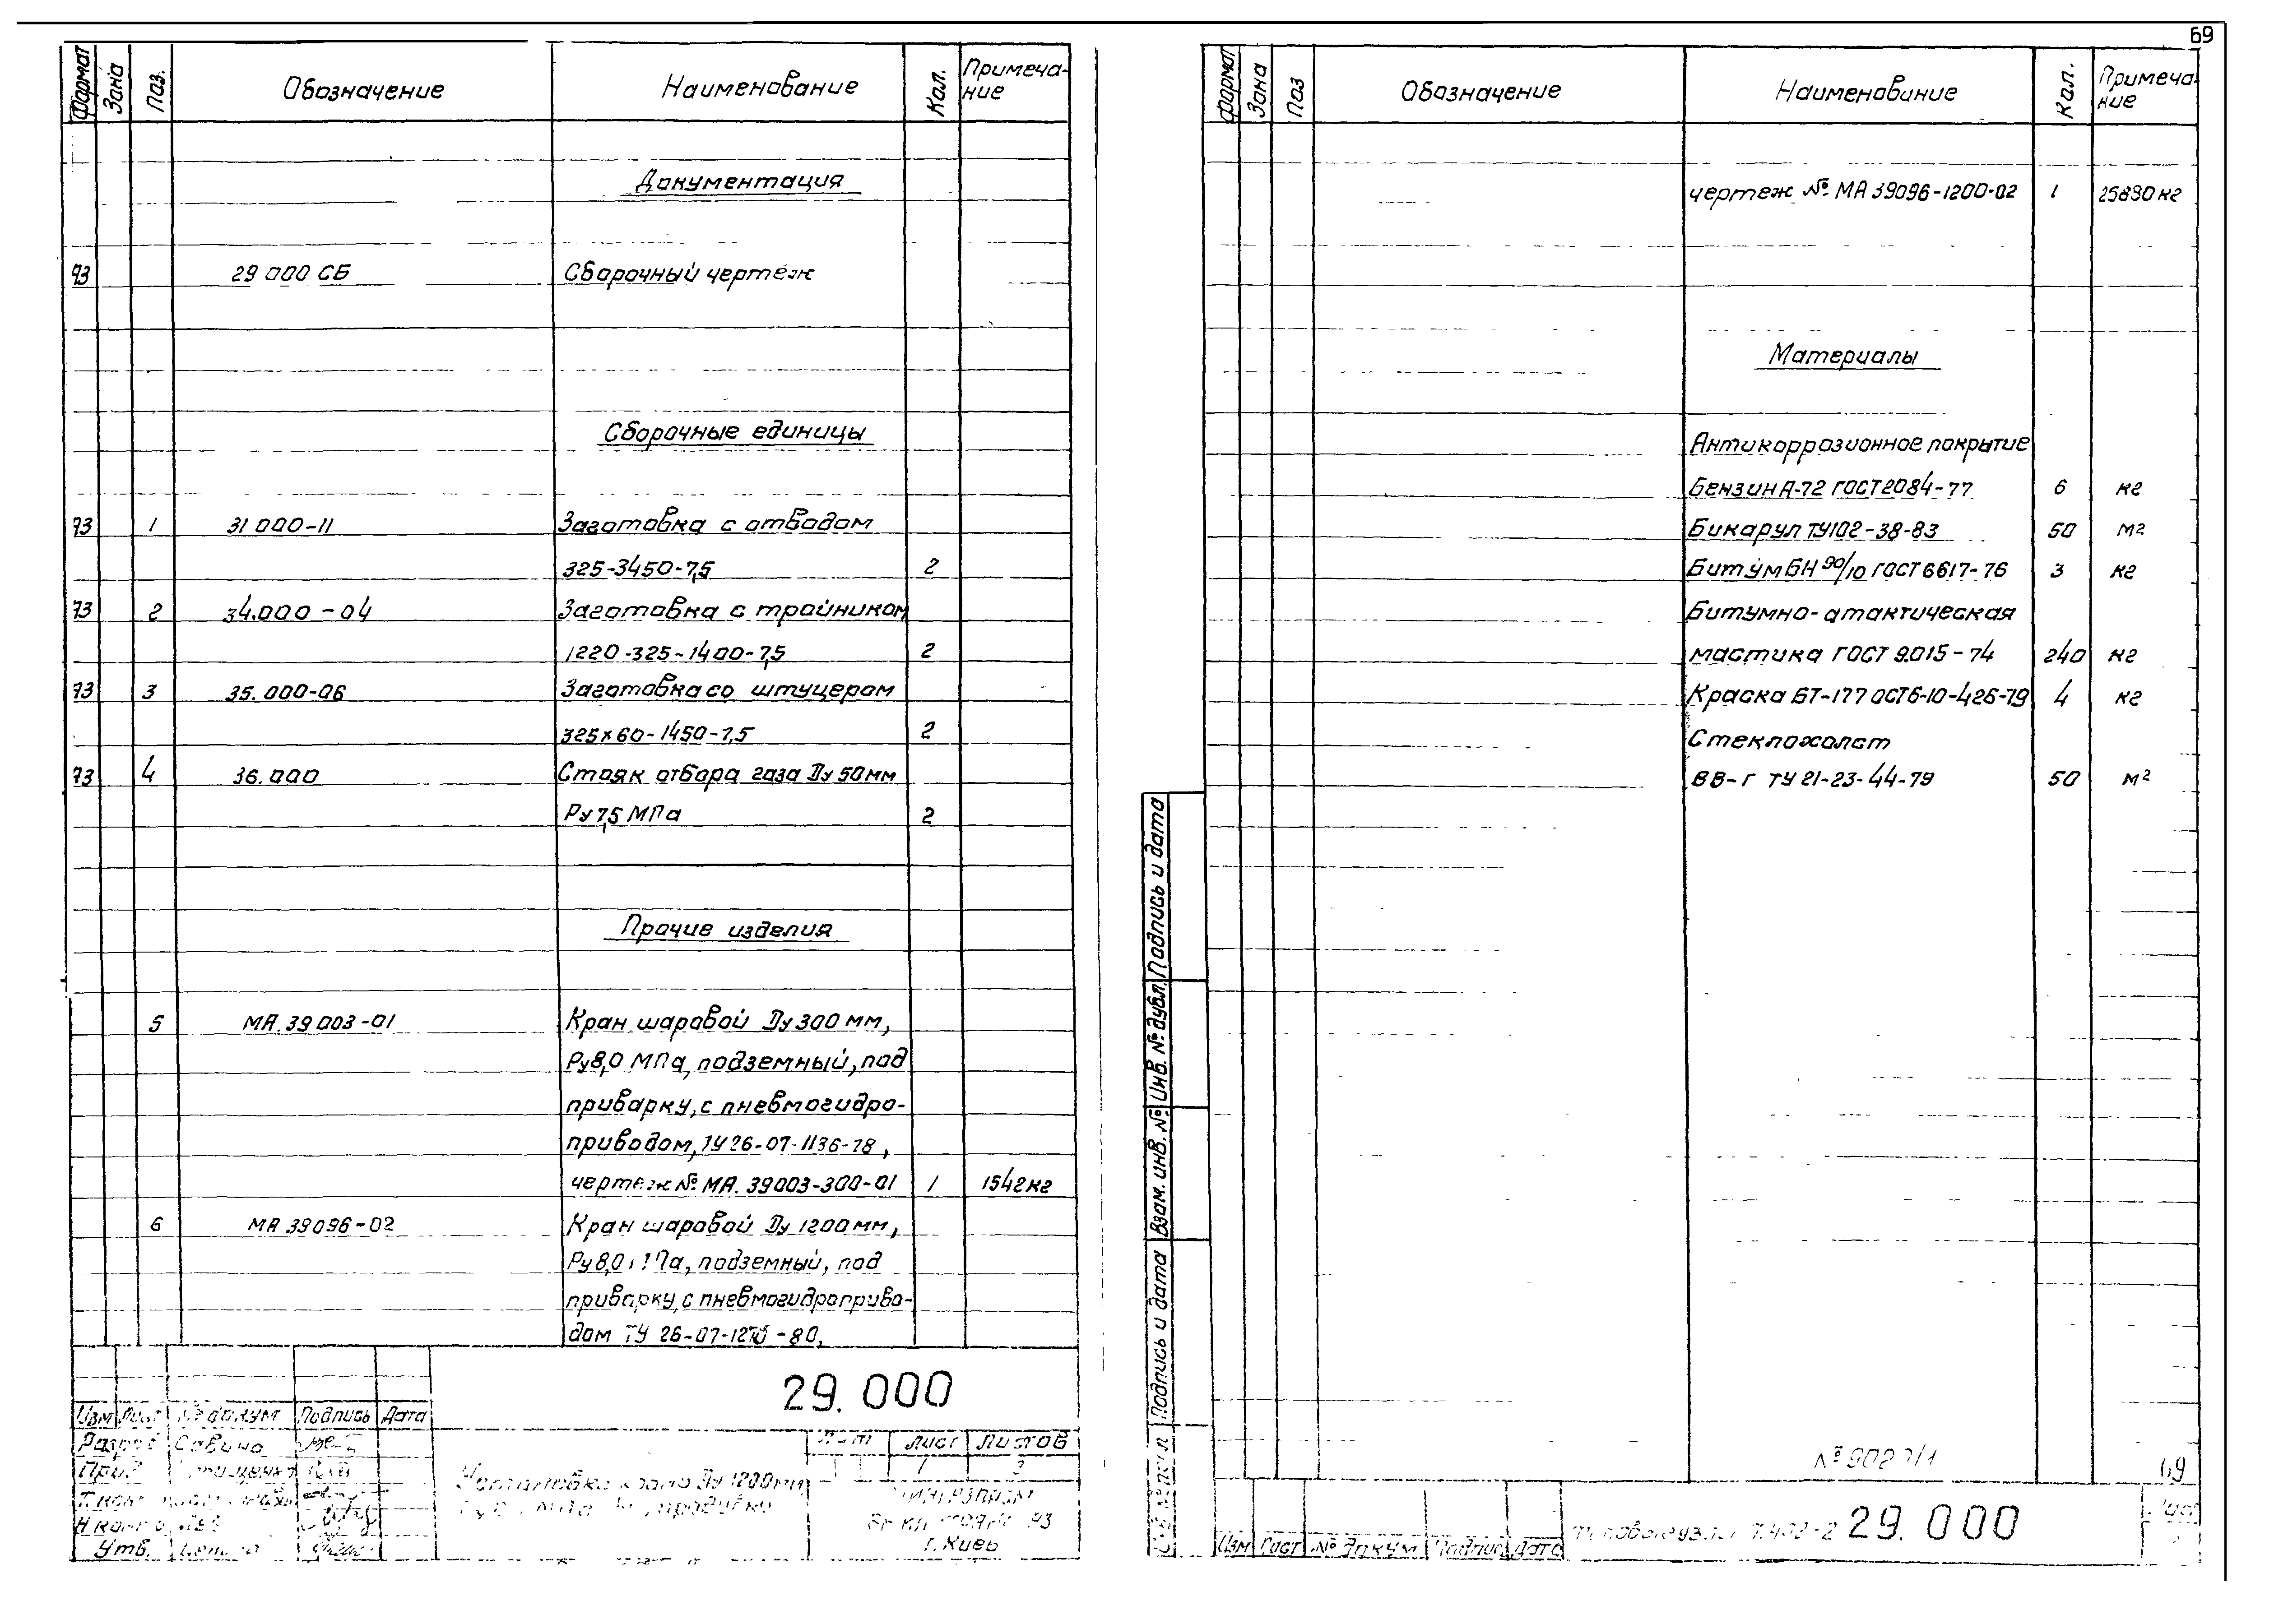 69
Формат Зона Поз. Обозначение Наименование Кол. Примеча-
ние
Документация
29 000 СБ Сборочный чертеж
Сборочные единицы
1 31 000-11 Заготовка с отводом
325-3450-7,5 2
2 34.000-04 Заготовка с тройником
1220-325-1400-7,5 2
3 35.000-06 Заготовка со штуцером
325х60-1450-7,5 2
4 36.000 Стояк отбора газа Ду 50мм
Ру 7,5 МПа 2
Прочие изделия
5 МА.39 003-01 Кран шаровой Ду 300 мм,
Ру 8,0 МПа, подземный, под
приварку, с пневмогидро-
приводом, ТУ 26-07-1136-78,
чертеж № МА. 39003-300-01 1 1542кг
6 МА 39096-02 Кран шаровой Ду 1200мм,
Ру 8,0 подземный, под
приварку, с пневмогидроприво-
дом ТУ 26-07- -80,
29.000
Изм Лист № докум Подпись Дата
Разраб Савина
Лист Листов
Ду 1200мм
Утв.
г. Киев
Формат Зона Поз Обозначение Наименование Кол. Примеча-
ние
чертеж № МА 39096-1200-02 1 25830 кг
Материалы
Антикоррозионное покрытие
Бензин А-72 ГОСТ 2084-77 6 кг
Бикарул ТУ102-38-83 50 м2
Битум БН 90/10 ГОСТ 6617-76 3 кг
Битумно-атактическая
мастика ГОСТ 9.015-74 240 кг
Краска БТ-177 ОСТ6-10-426-79 4 кг
Стеклохолст
ВВ-Г ТУ 21-23-44-79 50 м2
Подпись и дата
Инв. № дубл.
Взам. инв. №
Подпись и дата
69
29.000
Изм Лист № докум Подпись Дата